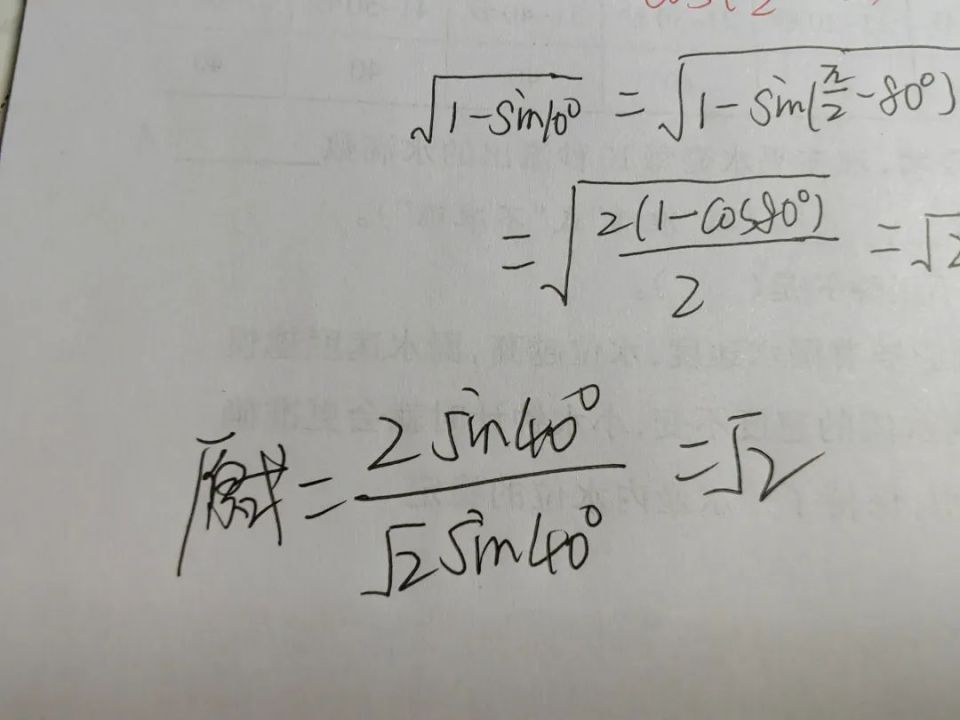 √1-sin10° = √1-sin(π/2-80°)
= √2(1-cos80°)/2 = √2
原式 = 2sin40°/√2sin40° = √2